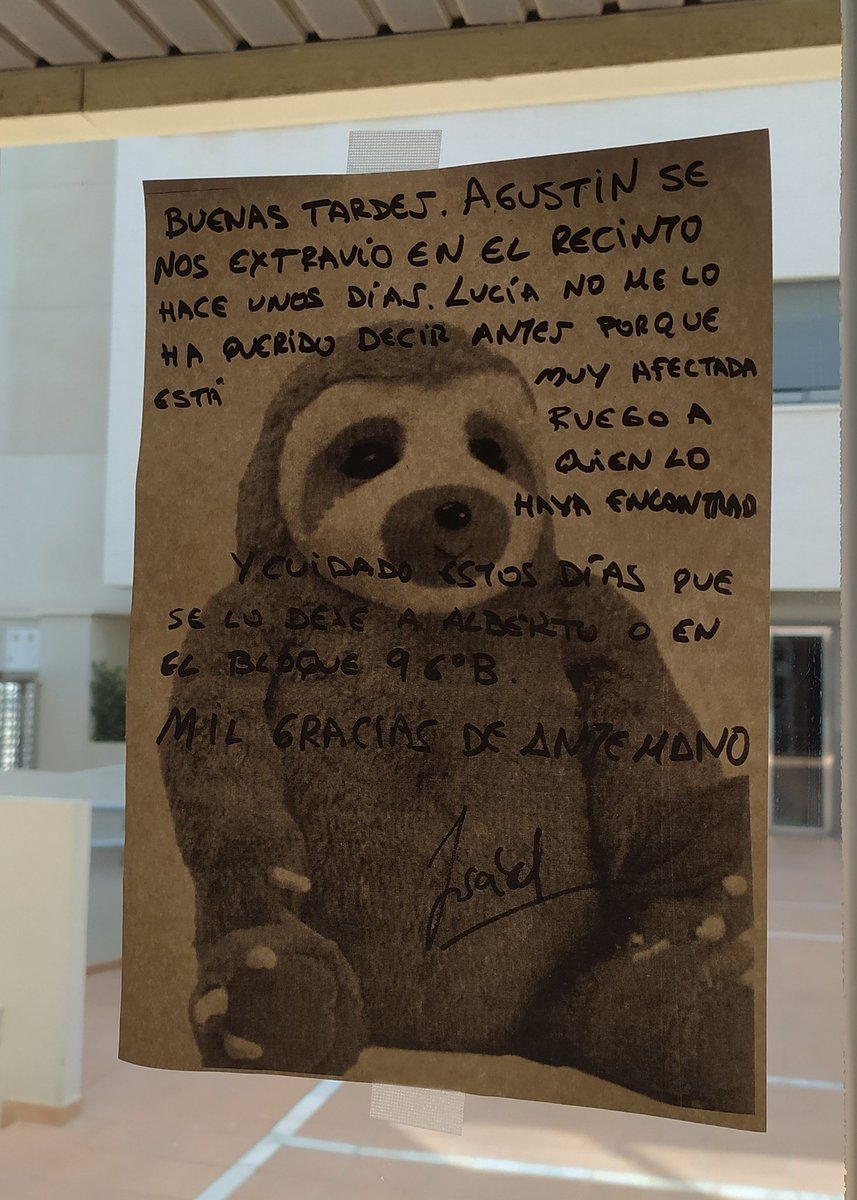 BUENAS TARDES. AGUSTIN SE
NOS EXTRAVIO EN EL RECINTO
HACE UNOS DÍAS. LUCÍA NO ME LO
HA QUERIDO DECIR ANTES PORQUE
ESTÁ MUY AFECTADA
RUEGO A
QUIEN LO
HAYA ENCONTRAD
Y CUIDADO ESTOS DÍAS QUE
SE LO DEJE A ALBERTO O EN
EL BLOQUE 9 6ºB.
MIL GRACIAS DE ANTEMANO
Isabel